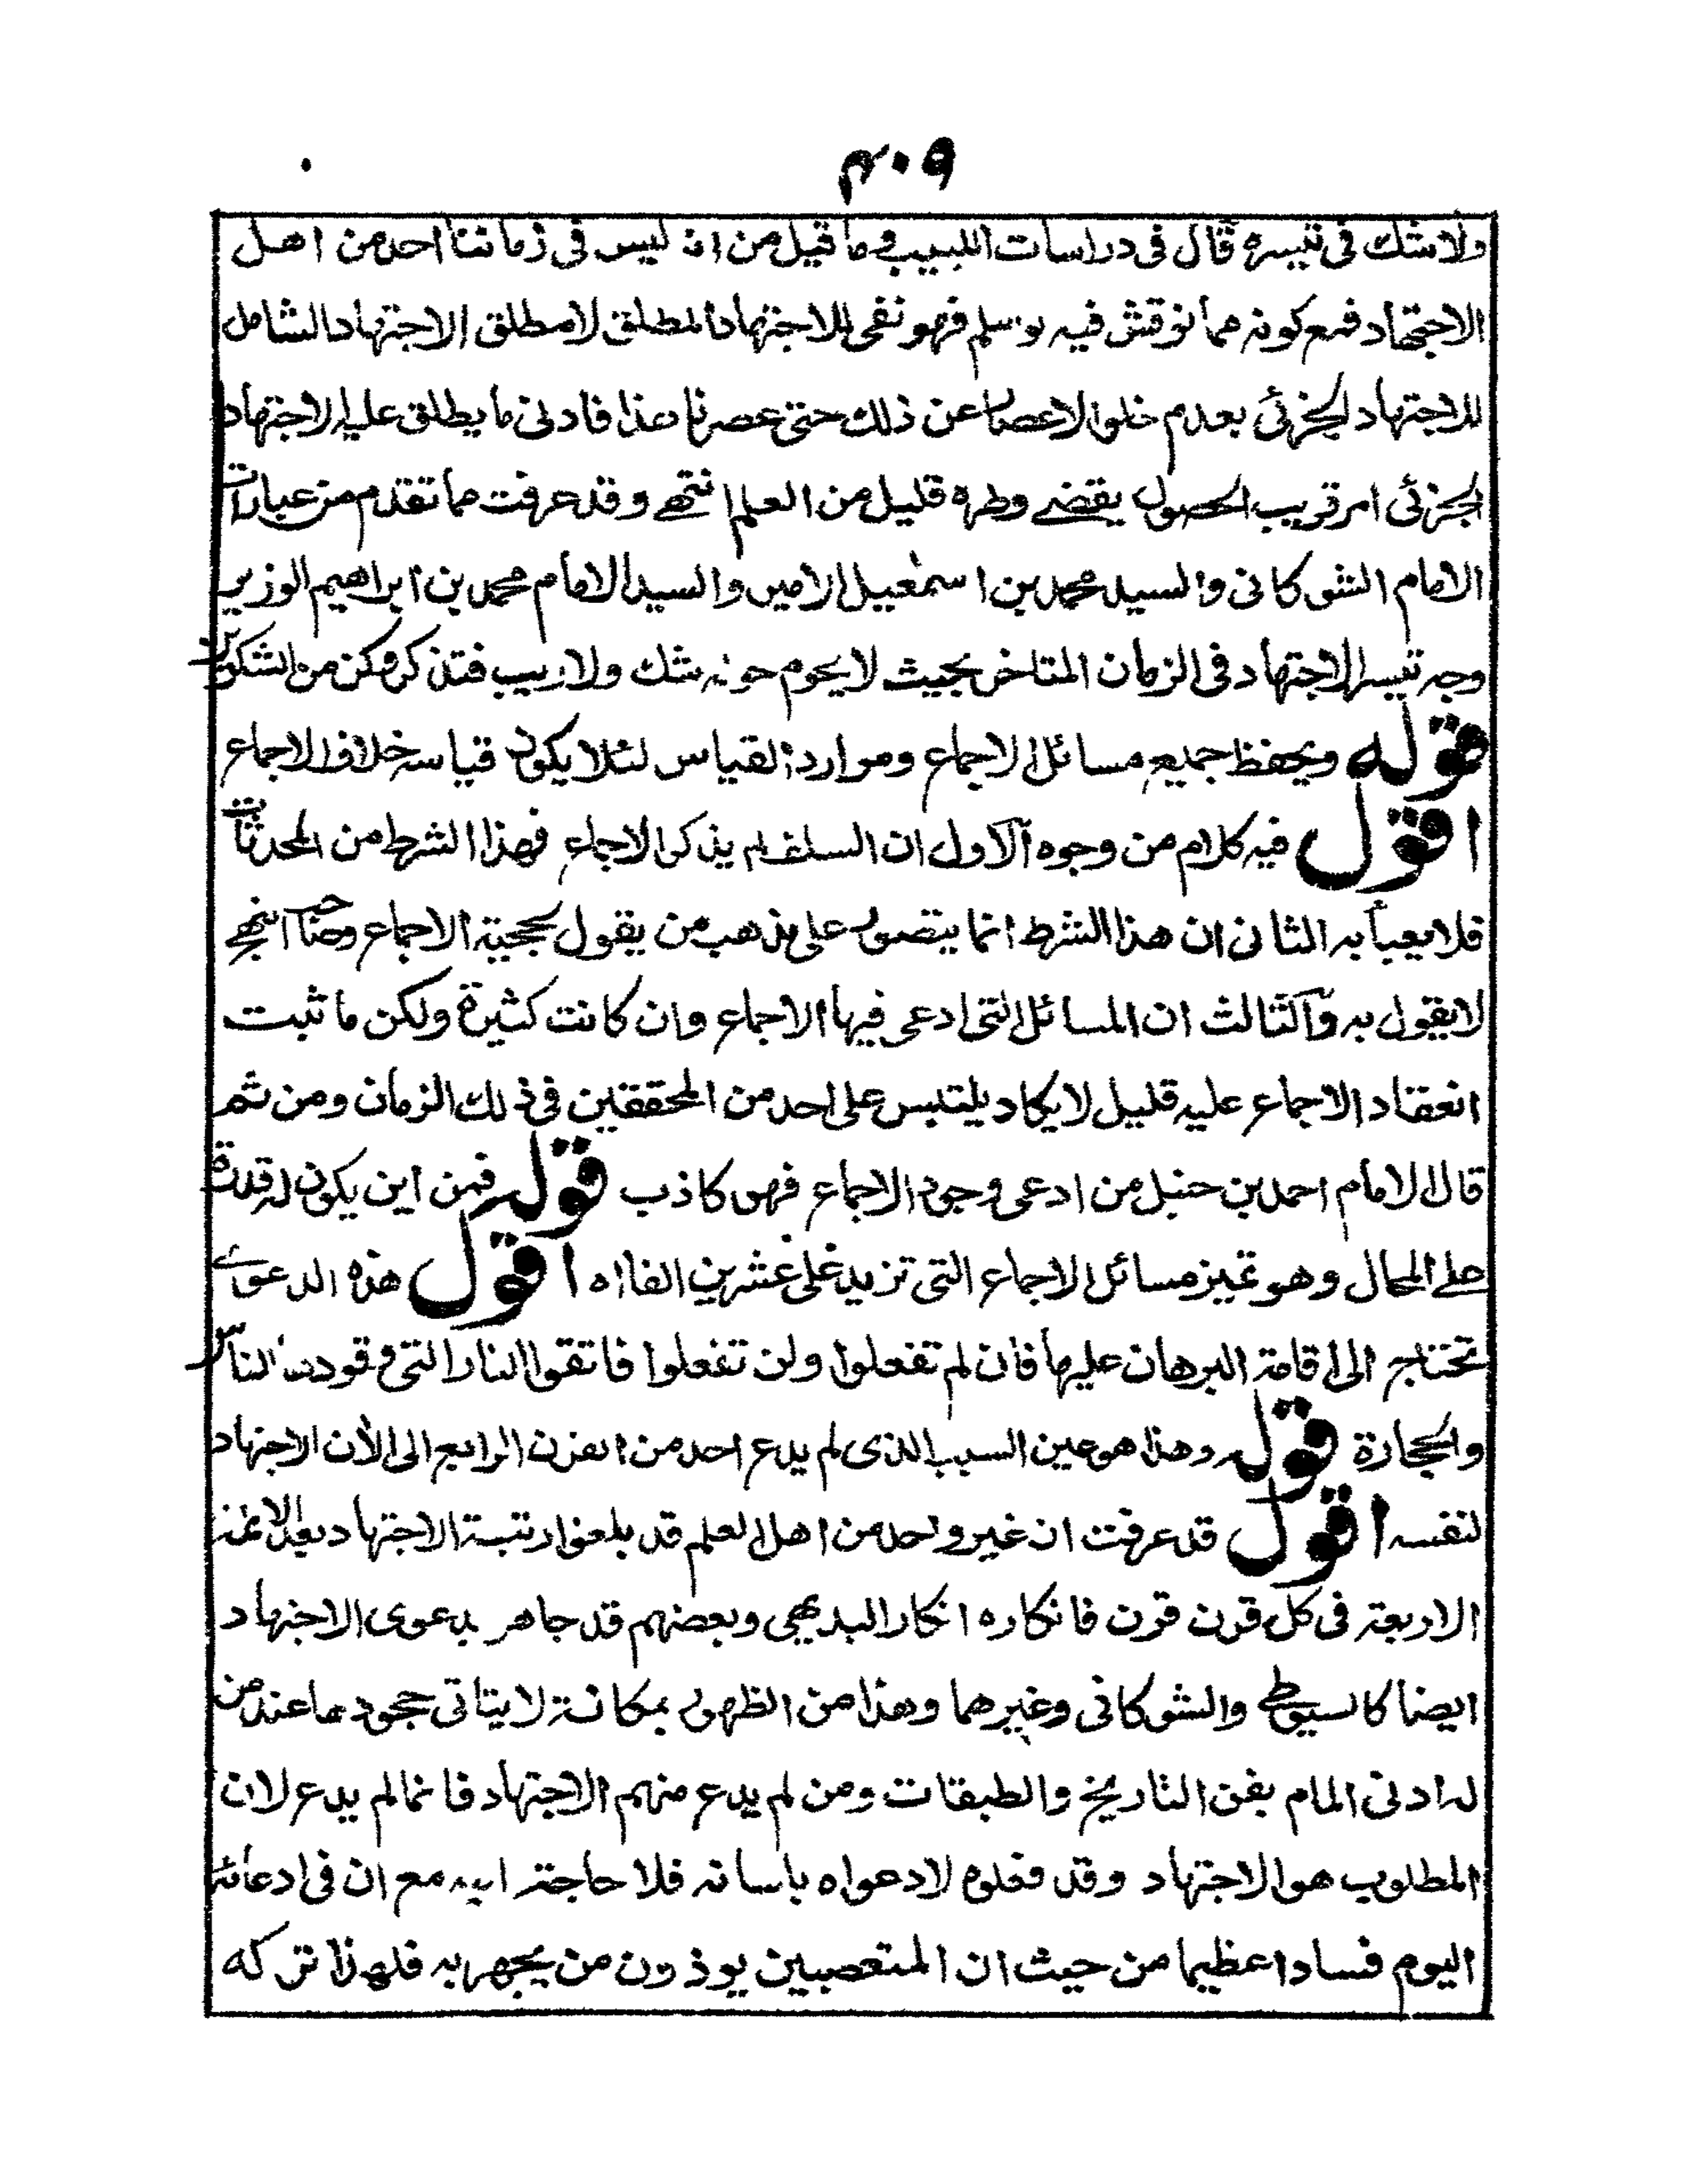 ٤٠٩
ولا شك فى تيسره قال فى دراسات اللبيب وما قيل من انه ليس فى زماننا احد من اهل
الاجتهاد فمع كونه مما نوقش فيه لو سلم فهو نفى للاجتهاد المطلق لا مطلق الاجتهاد الشامل
للاجتهاد الجزئى بعدم خلو الاعصار عن ذلك حتى عصرنا هذا فادنى ما يطلق عليه الاجتهاد
الجزئى امر قريب الحصول يقضے وطره قليل من العلم انتهے وقد عرفت مما تقدم من عبارات
الامام الشوكانى والسيد محمد بن اسمٰعيل الامير والسيد الامام محمد بن ابراهيم الوزير
وجه تيسر الاجتهاد فى الزمان المتاخر بحيث لا يحوم حوله شك ولا ريب فتذكر وكن من الشكرين
قوله ويحفظ جميع مسائل الاجماع وموارد القياس لئلا يكون قياسه خلاف الاجماع
اقول فيه كلام من وجوه الاول ان السلف لم يذكر الاجماع فهذا الشرط من المحدثات
فلا يعبأ به الثانى ان هذا الشرط انما يتصور على مذهب من يقول بحجية الاجماع وصاحب النهج
لا يقول به والثالث ان المسائل التى ادعى فيها الاجماع وان كانت كثيرة ولكن ما ثبت
انعقاد الاجماع عليه قليل لا يكاد يلتبس على احد من المحققين فى ذلك الزمان ومن ثم
قال الامام احمد بن حنبل من ادعى وجود الاجماع فهو كاذب قوله فمن اين يكون له قدرة
على المحال وهو تميز مسائل الاجماع التى تزيد على عشرين الفا اه اقول هذه الدعوے
تحتاج الى اقامة البرهان عليها فان لم تفعلوا ولن تفعلوا فاتقوا النار التى وقودها الناس
والحجارة قوله وهذا هو عين السبب الذى لم يدع احد من القرن الرابع الى الأن الاجتهاد
لنفسه اقول قد عرفت ان غير واحد من اهل العلم قد بلغوا رتبة الاجتهاد بعد الائمة
الاربعة فى كل قرن قرن فانكاره انكار البديهى وبعضهم قد جاهر بدعوى الاجتهاد
ايضا كالسيوطے والشوكانى وغيرهما وهذا من الظهور بمكانة لا يتاتى جحودها عند من
له ادنى المام بفن التاريخ والطبقات ومن لم يدع منهم الاجتهاد فانما لم يدع لان
المطلوب هو الاجتهاد وقد فعلوه لا دعواه باسانه فلا حاجة اليه مع ان فى ادعائه
اليوم فسادا عظيما من حيث ان المتعصبين يوذون من يجهر به فلهذا تركه